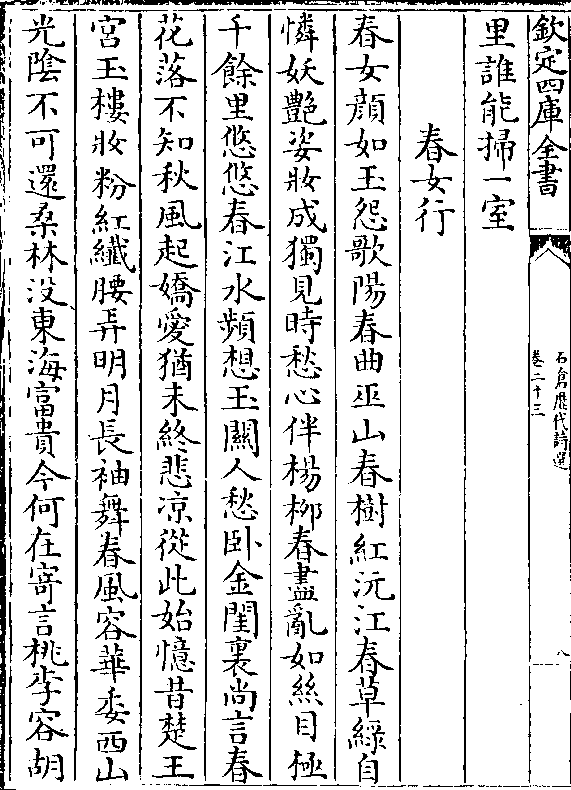 欽定四庫全書
石倉歴代詩選
卷二十三
八
里誰能掃一室
春女行
春女顔如玉怨歌陽春曲巫山春樹紅沅江春草緑自
憐妖艷姿妝成獨見時愁心伴楊栁春盡亂如絲目極
千餘里悠悠春江水頻想玉關人愁卧金閨裏尚言春
花落不知秋風起嬌愛猶未終悲凉從此始憶昔楚王
宮玉樓妝粉紅纖腰弄明月長袖舞春風容華委西山
光陰不可還桑林没東海富貴今何在寄言桃李容胡